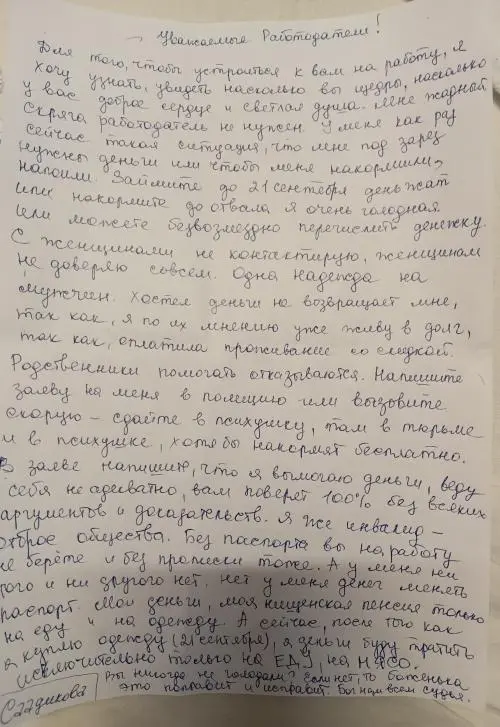 Уважаемые Работодатели!
Для того, чтобы устроиться к вам на работу, я
хочу узнать, увидеть насколько вы щедры, насколько
у вас доброе сердце и светлая душа. Мне жадный,
скряга работодатель не нужен. У меня как раз
сейчас такая ситуация, что мне под зарез
нужны деньги или чтобы меня накормили,
напоили. Займите до 21 сентября деньжат
или накормите до отвала я очень голодная.
Или можете безвозмездно перечислить денежку.
С женщинами не контактирую, женщинам
не доверяю совсем. Одна надежда на
мужчин. Хостел деньги не возвращает мне,
так как, я по их мнению уже живу в долг,
так как, оплатила проживание со скидкой.
Родственники помогать отказываются. Напишите
заяву на меня в полицию или вызовите
скорую – сдайте в психушку, там в тюрьме
и в психушке, хотя бы накормят бесплатно.
В заяве напишите, что я вымогаю деньги, веду
себя не адекватно, вам поверят 100% без всяких
аргументов и доказательств. Я же инвалид –
отброс общества. Без паспорта вы на работу
не берёте и без прописки тоже. А у меня ни
того и ни другого нет, нет у меня денег менять
паспорт. Мои деньги, моя нищенская пенсия только
на еду и на одежду. А сейчас, после того как
я куплю одежду (21 сентября), я деньги буду тратить
исключительно только на ЕДУ, на МЯСО.
Вы никогда не голодали? Если нет, то боженька
это поправит и исправит. Бог нам всем судья.
Саадикова